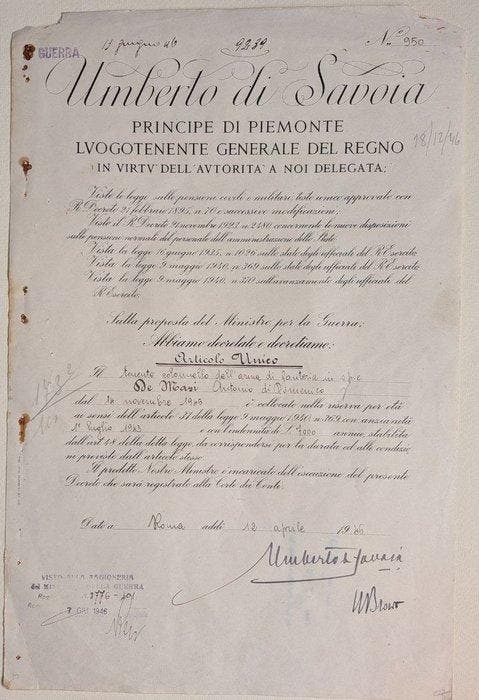 13 giugno 46 9239 N.º 950
GUERRA
Umberto di Savoia
PRINCIPE DI PIEMONTE
LVOGOTENENTE GENERALE DEL REGNO
18/12/46
IN VIRTV' DELL'AVTORITA' A NOI DELEGATA;
Viste le leggi sulle pensioni civili e militari, testo unico approvato con
R. Decreto 21 febbraio 1895, n. 70 e successive modificazioni;
Visto il R. Decreto 21 novembre 1923, n. 2480 concernente le nuove disposizioni
sulle pensioni normali del personale dell'amministrazione dello Stato;
Vista la legge 16 giugno 1935, n. 1026 sullo stato degli ufficiali del R. Esercito;
Vista la legge 9 maggio 1940, n. 369 sullo stato degli ufficiali del R. Esercito;
Vista la legge 9 maggio 1940, n. 370 sull'avanzamento degli ufficiali del
R. Esercito;
Sulla proposta del Ministro per la Guerra;
Abbiamo decretato e decretiamo:
Articolo Unico
Il tenente colonnello dell'arma di fanteria in s.p.e.
De Masi Antonio di Domenico
dal 14 novembre 1945 è collocato nella riserva per età
ai sensi dell'articolo 31 della legge 9 maggio 1940 n. 369 con anzianità
1º luglio 1943 e con l'indennità di L. 4000 annue, stabilita
dall'art. 48 della detta legge, da corrispondersi per la durata ed alle condizioni
ni previste dall'articolo stesso.
Il predetto Nostro Ministro è incaricato dell'esecuzione del presente
Decreto che sarà registrato alla Corte dei Conti.
Dato a Roma addì 12 aprile 1946
Umberto di Savoia
VISTO ALLA RAGIONERIA
del MINISTERO DELLA GUERRA
7 GIU 1946